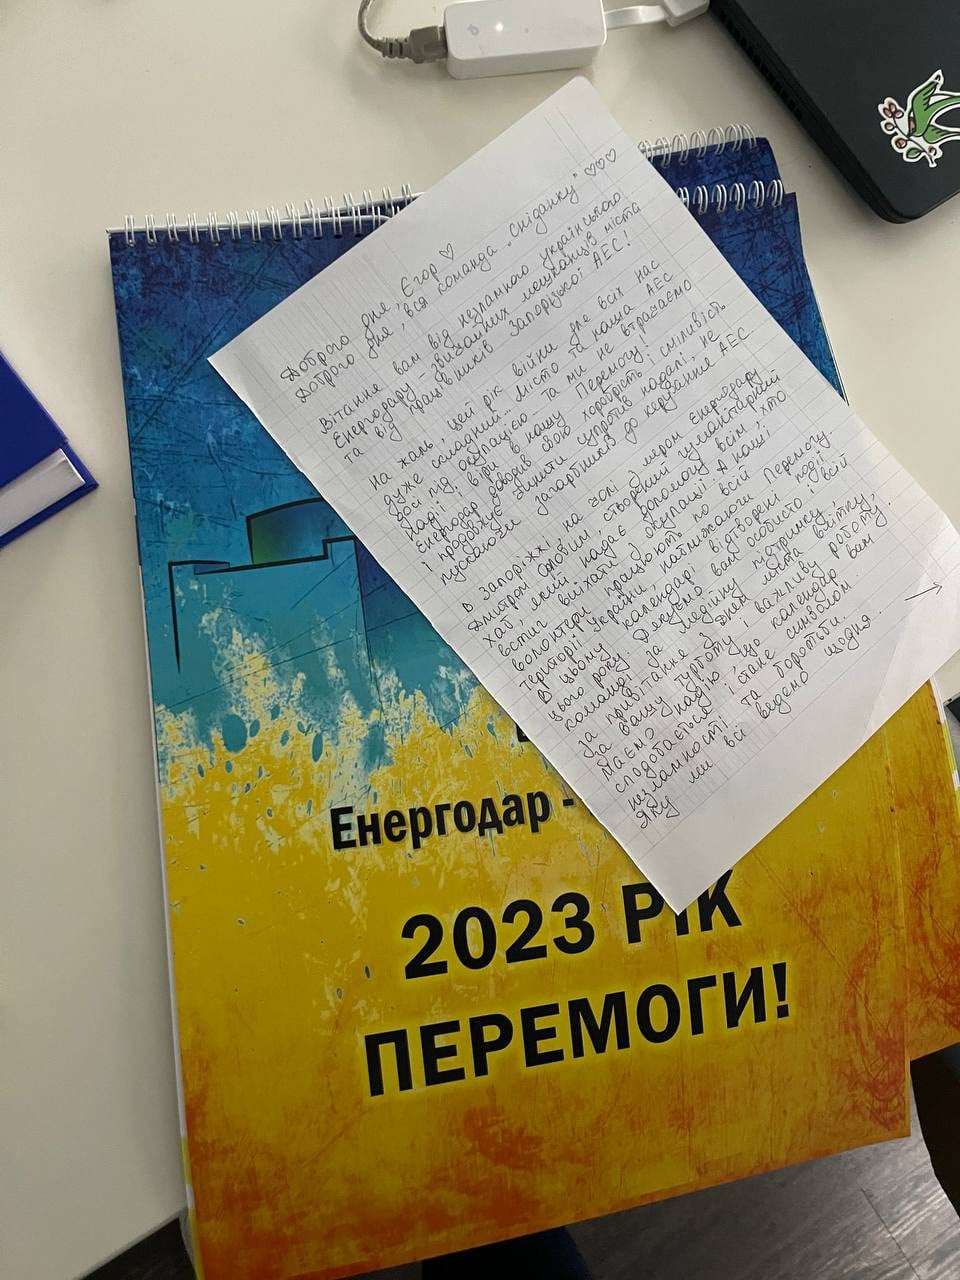 Доброго дня, Єгор ♡
Доброго дня, вся команда "Сніданку" ♡♡♡
Вітання вам від незламного українського
Енергодару - звичайних мешканців міста
та від працівників Запорізької АЕС!
На жаль, цей рік війни для всіх нас
дуже складний... Місто та наша АЕС
досі під окупацією... та ми не втрачаємо
надії, віри в нашу Перемогу!
Енергодар доводив свою хоробрість і сміливість
і продовжує чинити супротив надалі, не
пускаючи загарбників до керування АЕС.
В Запоріжжі, на чолі з мером Енергодару
Дмитром Орловим, створений гуманітарний
хаб, який надає допомогу всім, хто
встиг виїхати з окупації. А наші
волонтери працюють по всій
території України, наближаючи Перемогу.
В цьому календарі відтворені події
цього року. Дякуємо вам особисто і всій
команді за медійну підтримку,
за привітання з Днем міста влітку,
за вашу турботу і важливу роботу.
Маємо надію, що календар вам
сподобається і стане символом
незламності та боротьби,
яку ми всі ведемо щодня.
→
Енергодар -
2023 РІК
ПЕРЕМОГИ!